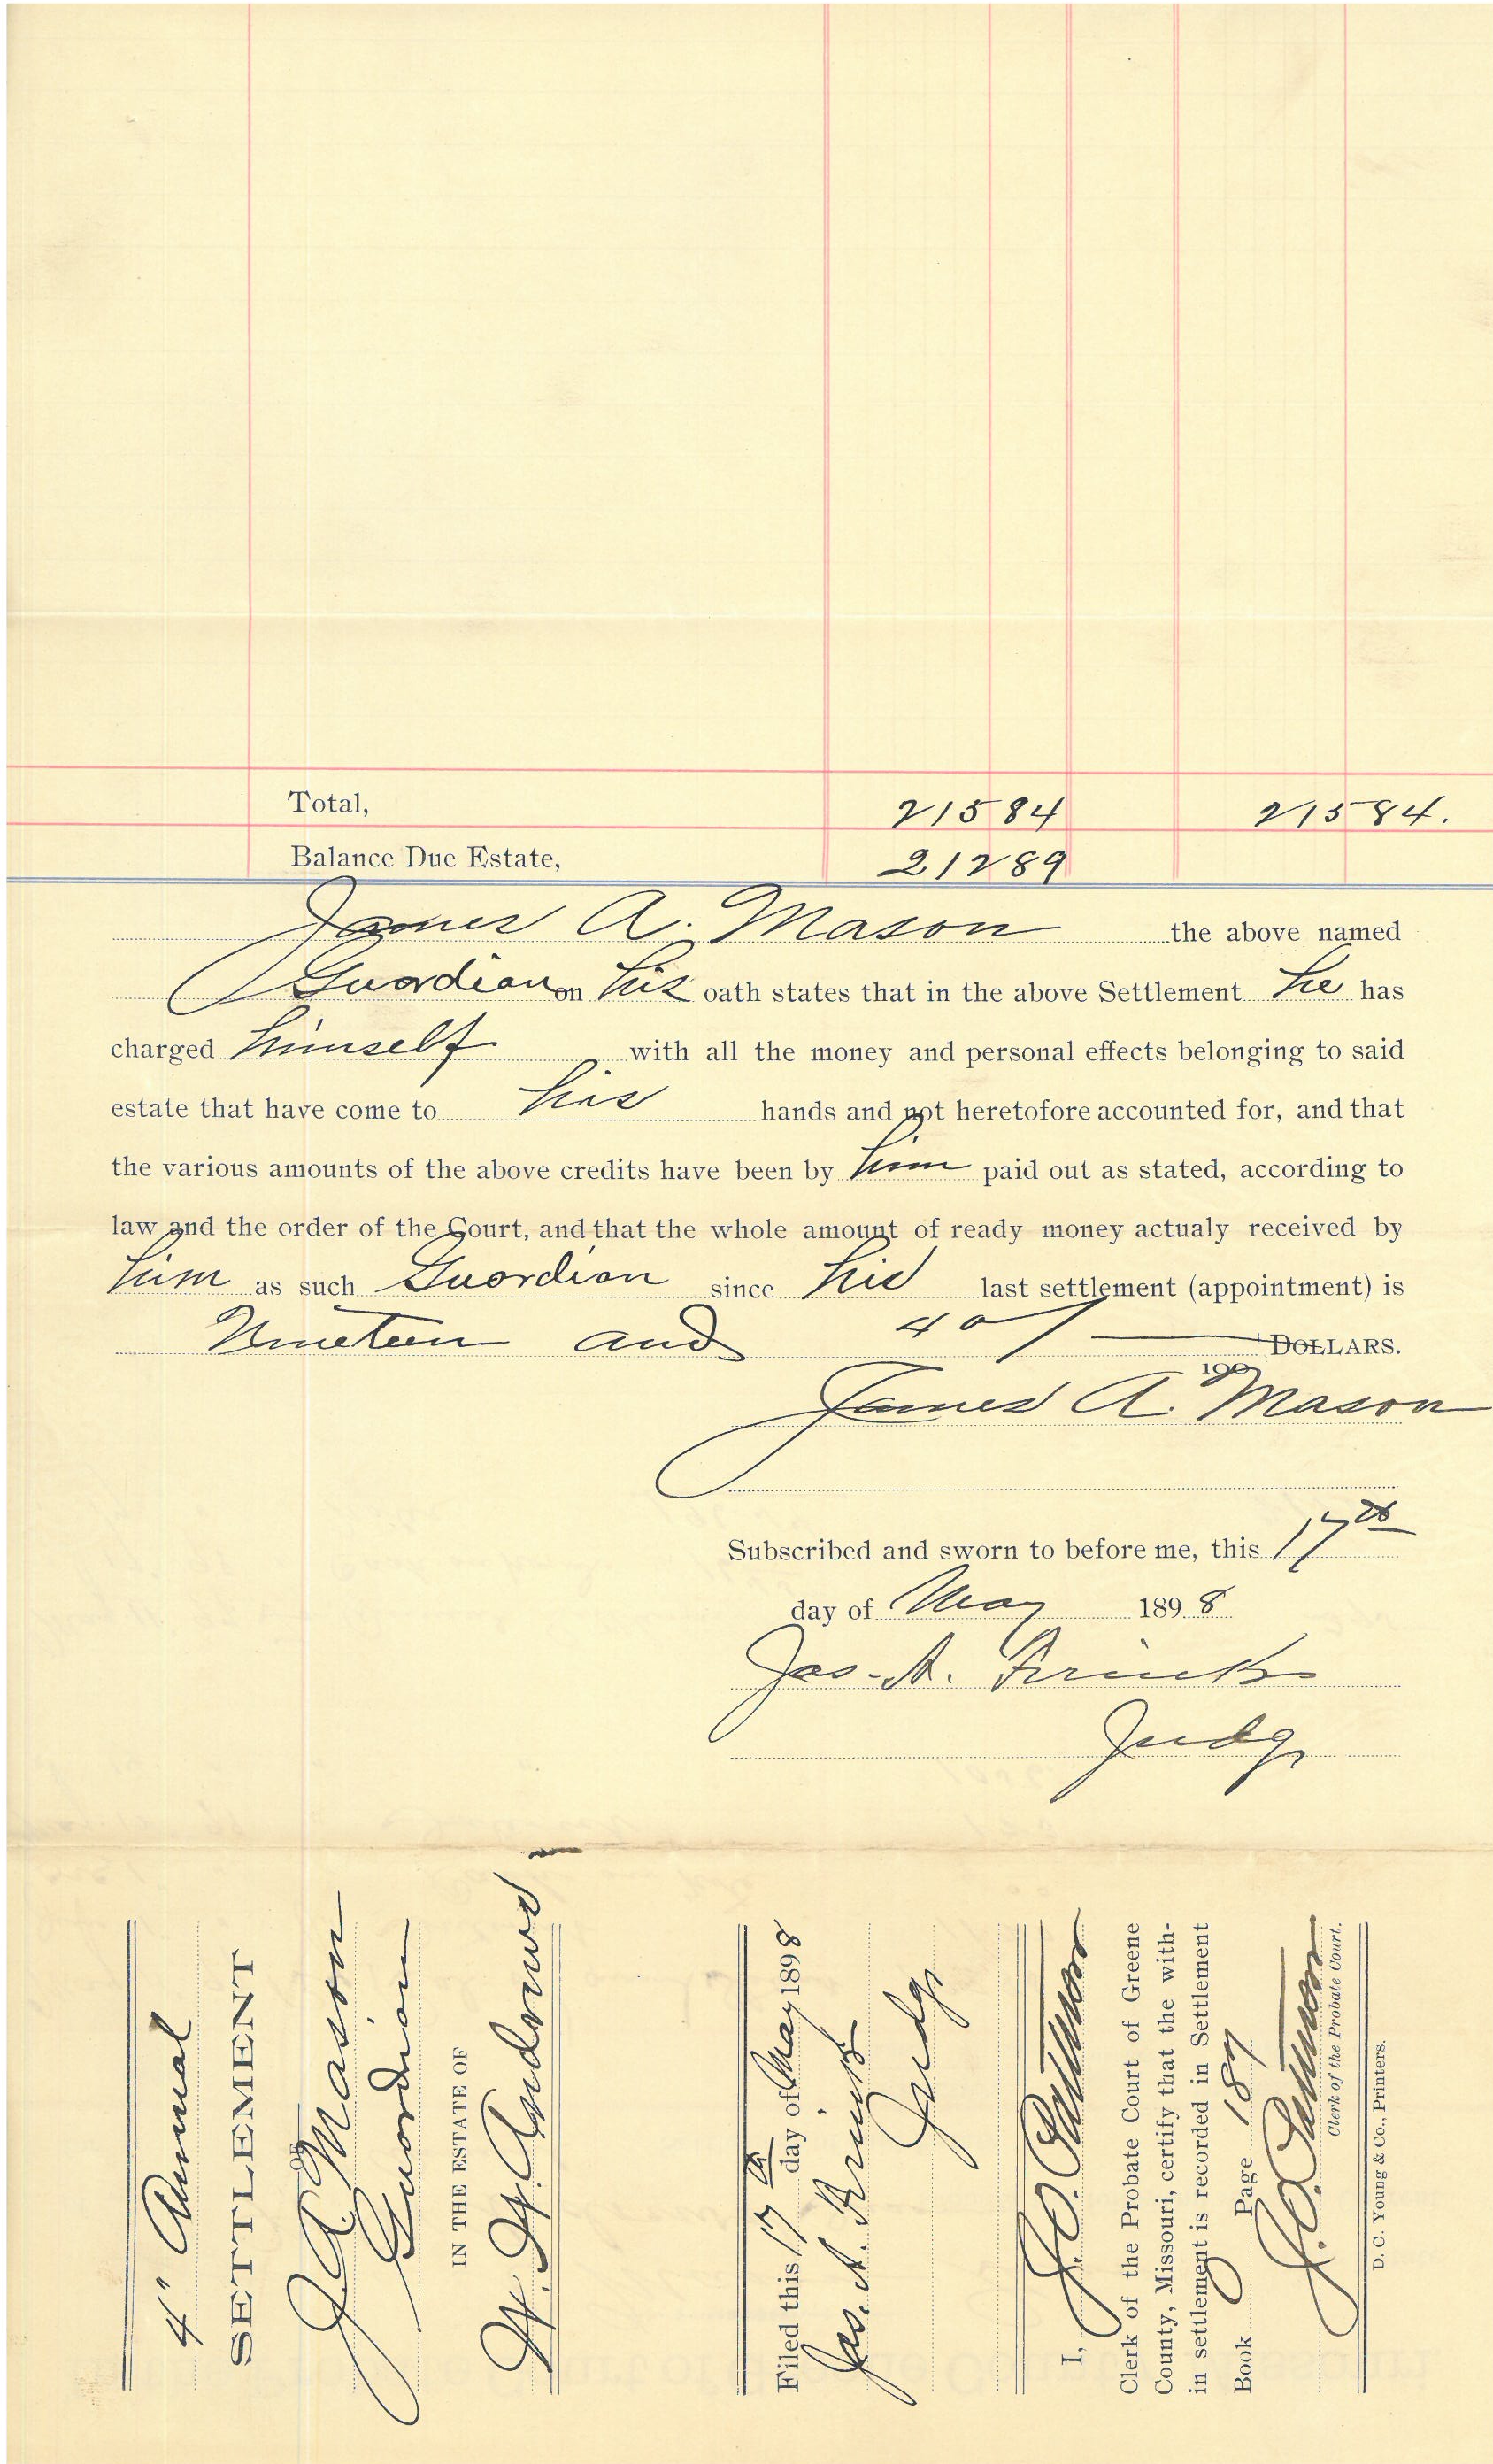 Total, 215 84 215 84.
Balance Due Estate, 212 89
James A. Mason the above named
Guardian on his oath states that in the above Settlement he has
charged himself with all the money and personal effects belonging to said
estate that have come to his hands and not heretofore accounted for, and that
the various amounts of the above credits have been by him paid out as stated, according to
law and the order of the Court, and that the whole amount of ready money actualy received by
him as such Guardian since his last settlement (appointment) is
Nineteen and 40/100 DOLLARS.
James A. Mason
Subscribed and sworn to before me, this 17th
day of May 1898
Jas. A. Frink
Judge
4" Annual
SETTLEMENT
J. A. Mason
Guardian
IN THE ESTATE OF
W. H. Andrews
Filed this 17th day of May 1898
Jas. A. Frink
Judge
I, J. O.
Clerk of the Probate Court of Greene
County, Missouri, certify that the with-
in settlement is recorded in Settlement
Book Page 187
J. O.
Clerk of the Probate Court.
D. C. Young & Co., Printers.